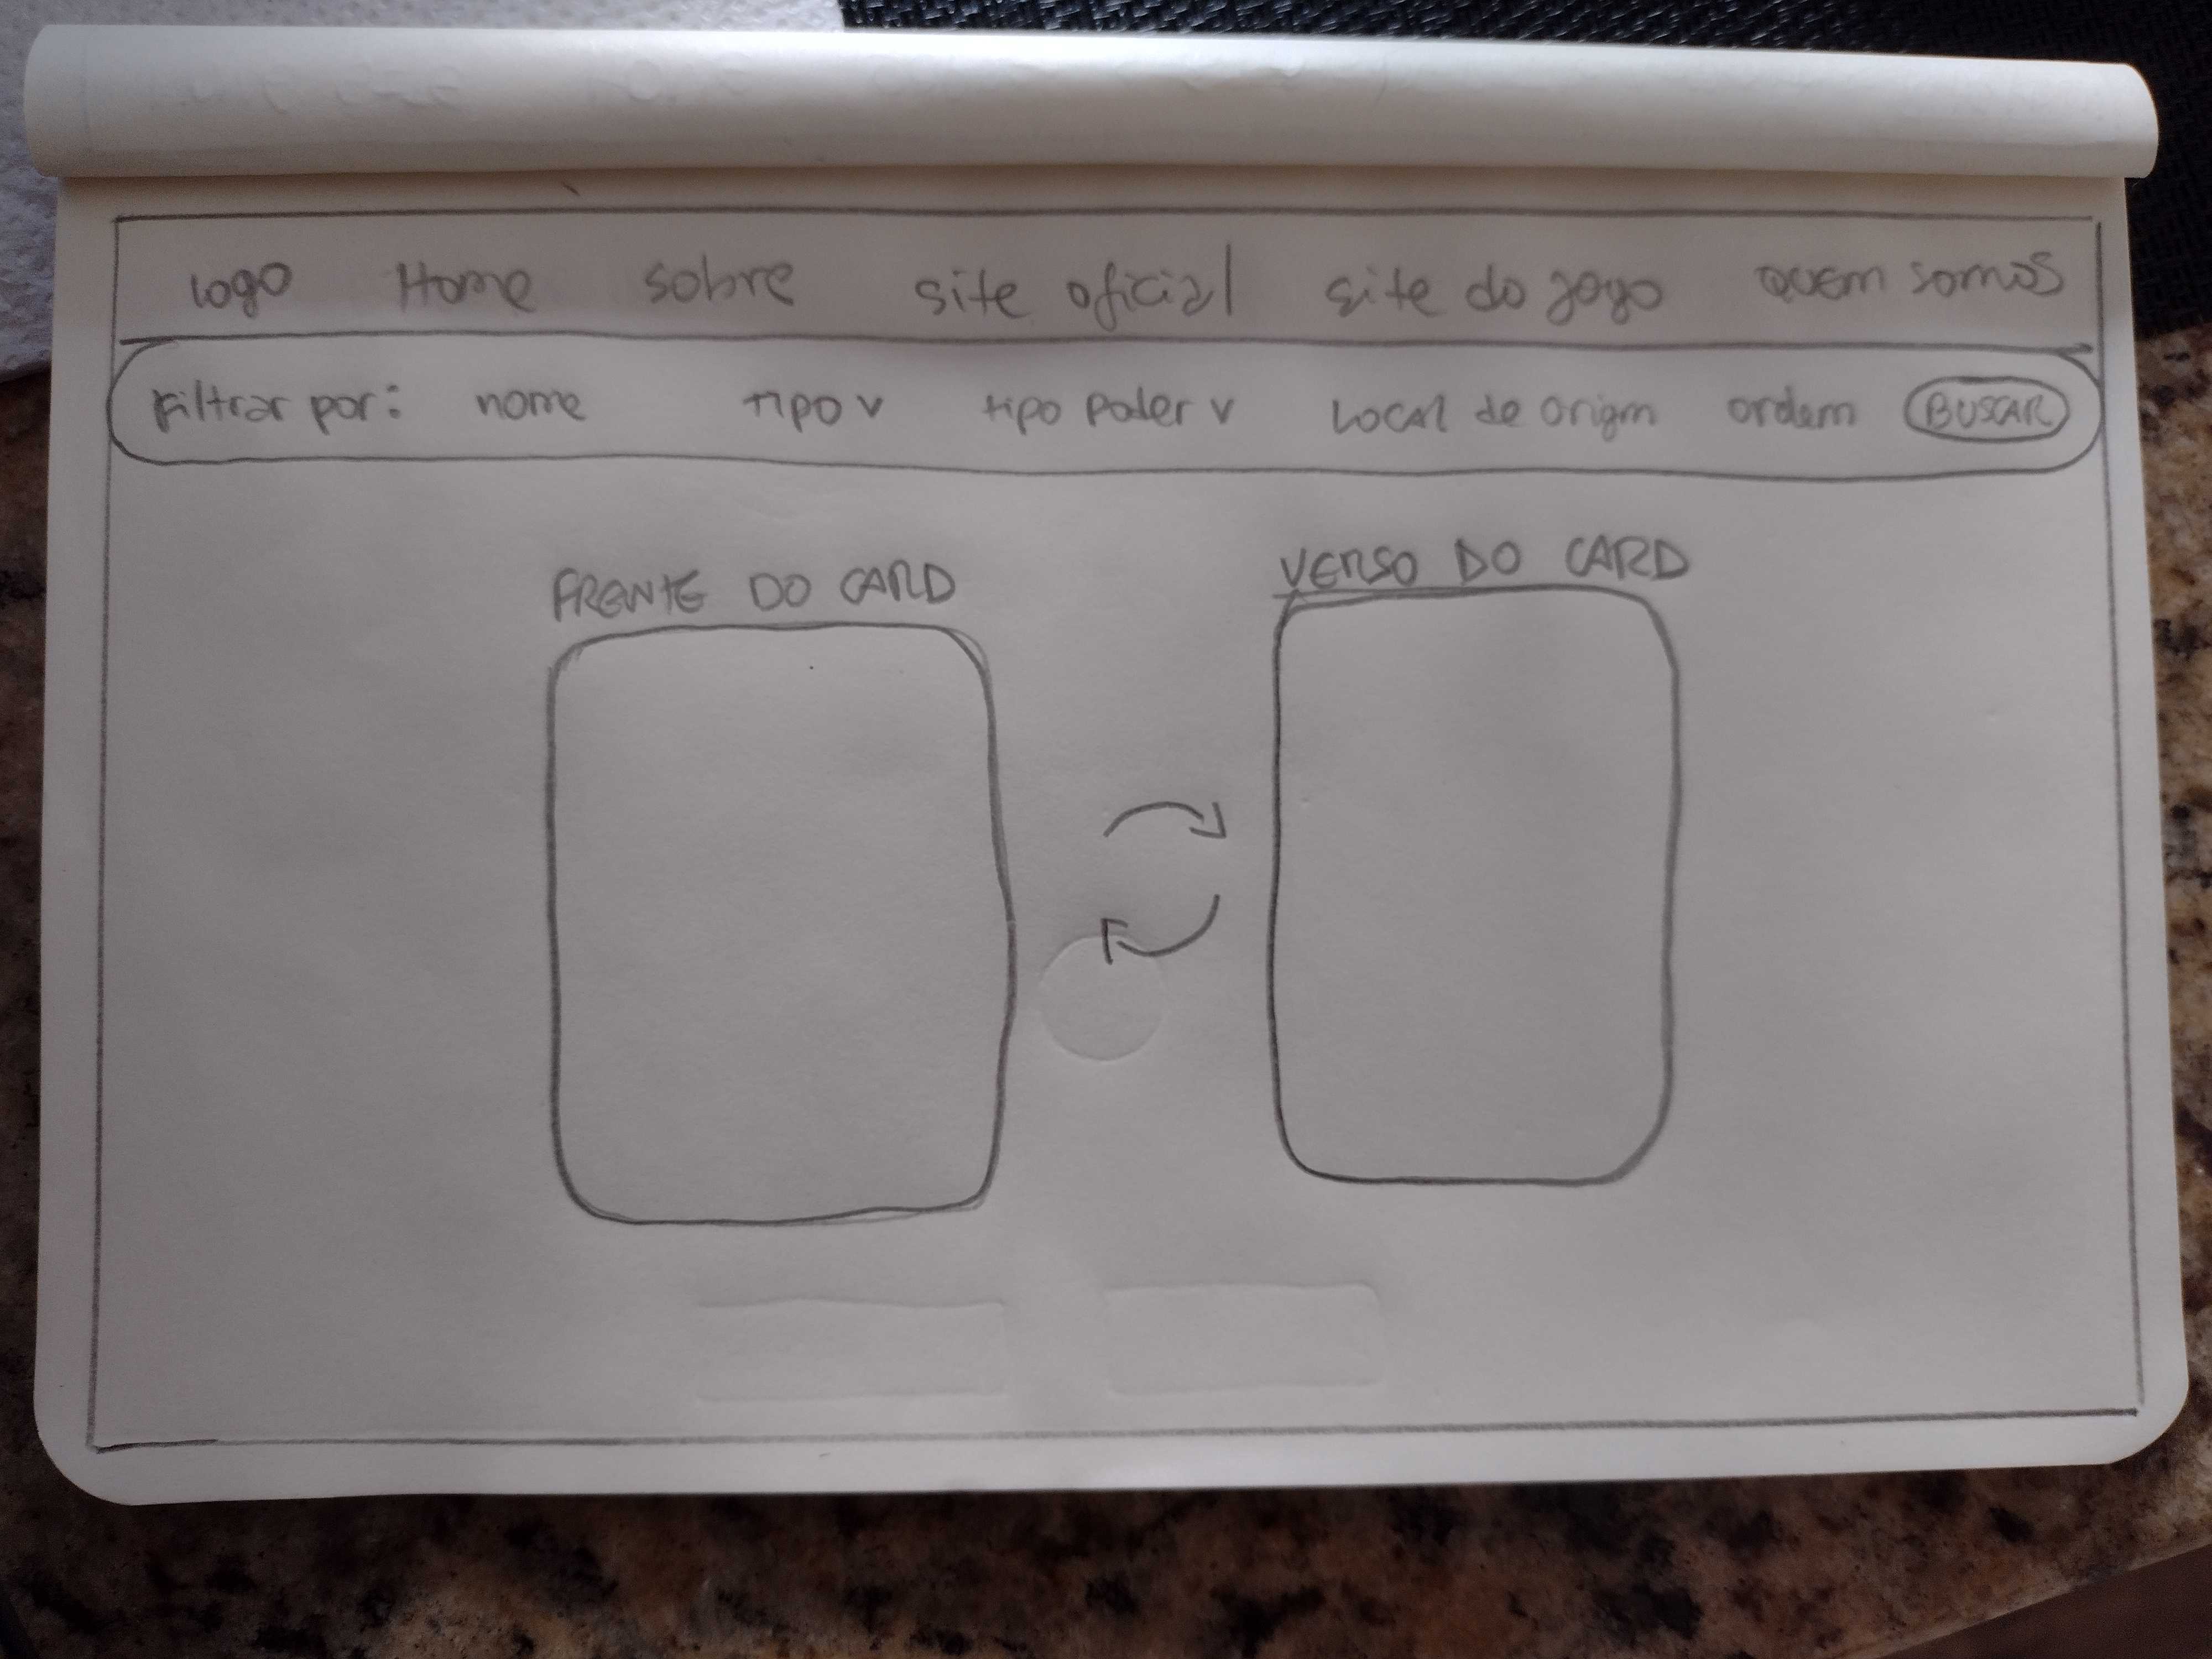 Logo Home sobre site oficial site do jogo quem somos
Filtrar por: nome tipo v tipo poder v Local de origm ordem BUSCAR
FRENTE DO CARD VERSO DO CARD